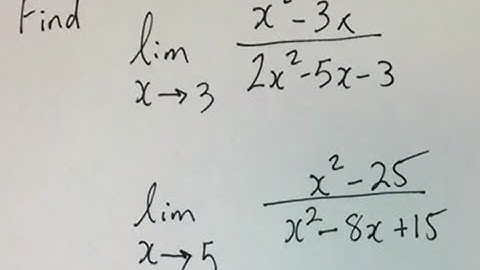 Find
lim x→3 (x² - 3x)/(2x² - 5x - 3)
lim x→5 (x² - 25)/(x² - 8x + 15)